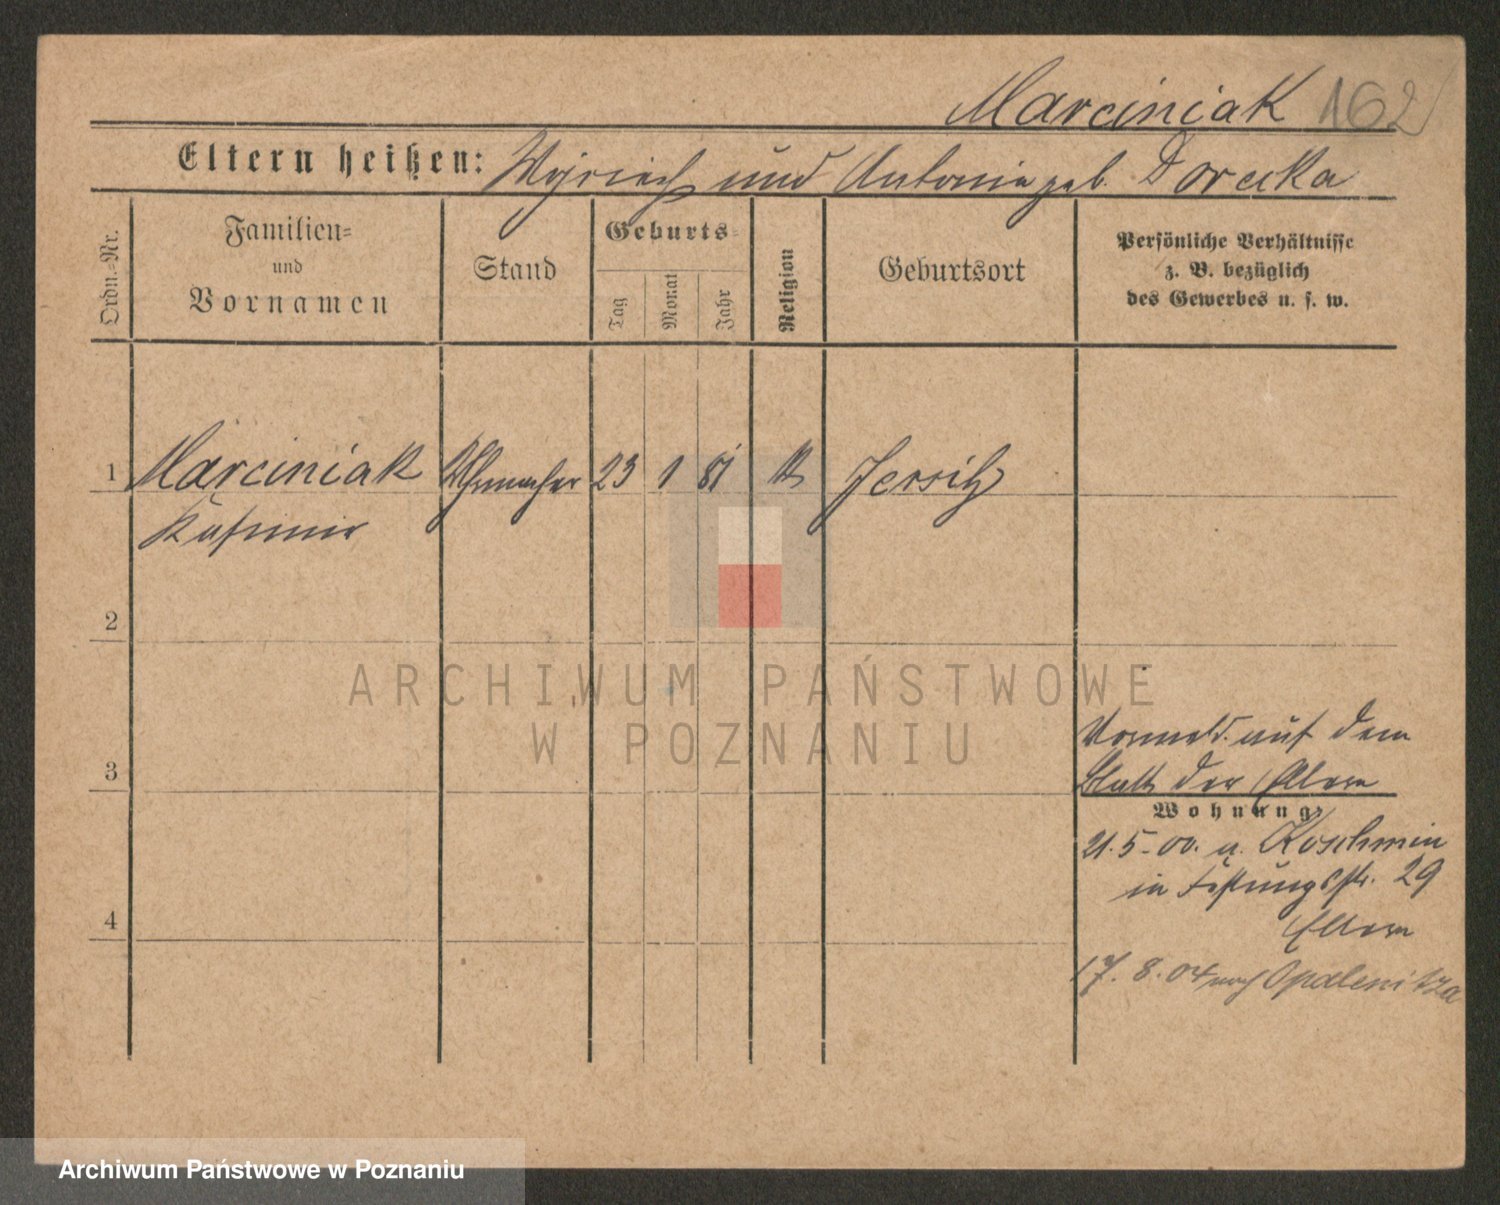 Marciniak 162
Eltern heißen: Wojciech und Antonie geb. Dorecka
Ordn.=Nr.
Familien=
und
Vornamen
Stand
Geburts=
Tag
Monat
Jahr
Religion
Geburtsort
Persönliche Verhältnisse
z. B. bezüglich
des Gewerbes u. s. w.
1 Marciniak Uhrmacher 23 1 81 k Jersitz
Kasimir
2
ARCHIWUM PAŃSTWOWE
W POZNANIU
3
Vormeld. auf dem
Blatt der Eltern
Wohnung
21.5.00. a. Koschmin
in Festungsstr. 29
Eltern
4
17.8.04 nach Opalenitza
Archiwum Państwowe w Poznaniu